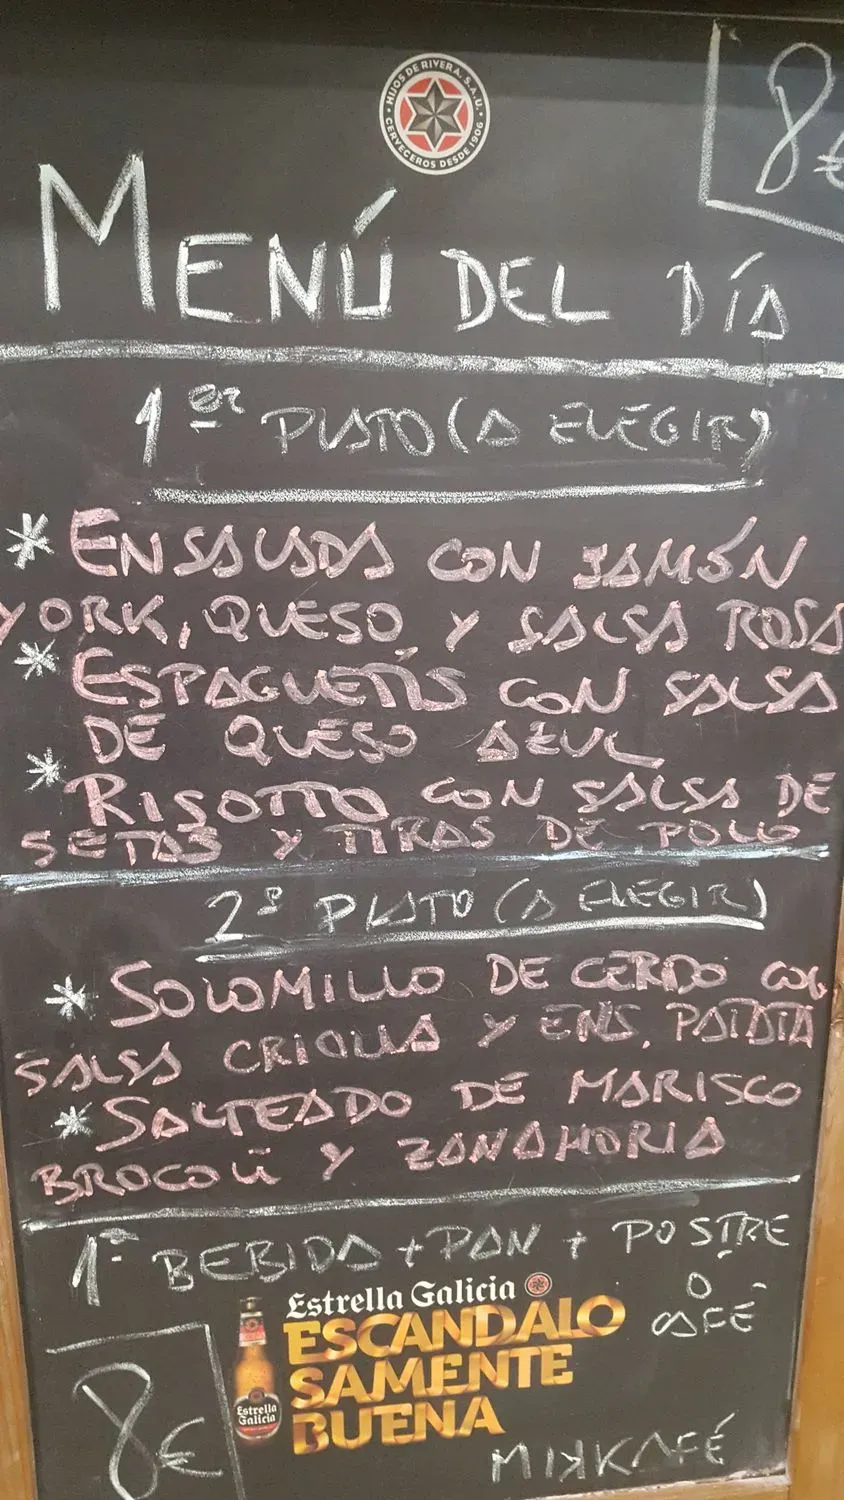 HIJOS DE RIVERA, S.A.U.
CERVECEROS DESDE 1906
8€
MENÚ DEL DÍA
1er PLATO (A ELEGIR)
* ENSALADA CON JAMÓN
YORK, QUESO Y SALSA ROSA
* ESPAGUETIS CON SALSA
DE QUESO AZUL
* RISOTTO CON SALSA DE
SETAS Y TIRAS DE POLLO
2º PLATO (A ELEGIR)
* SOLOMILLO DE CERDO CON
SALSA CRIOLLA Y ENS. PATATA
* SALTEADO DE MARISCO
BROCOLI Y ZANAHORIA
1ª BEBIDA + PAN + POSTRE
O
CAFÉ
Estrella Galicia
ESCANDALO
SAMENTE
BUENA
Estrella
Galicia
8€
MIKKAFÉ